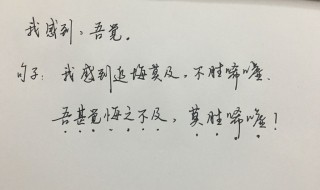 我感到：吾觉。
句子：我感到追悔莫及，不胜唏嘘。
吾甚觉悔之不及，莫胜唏嘘！